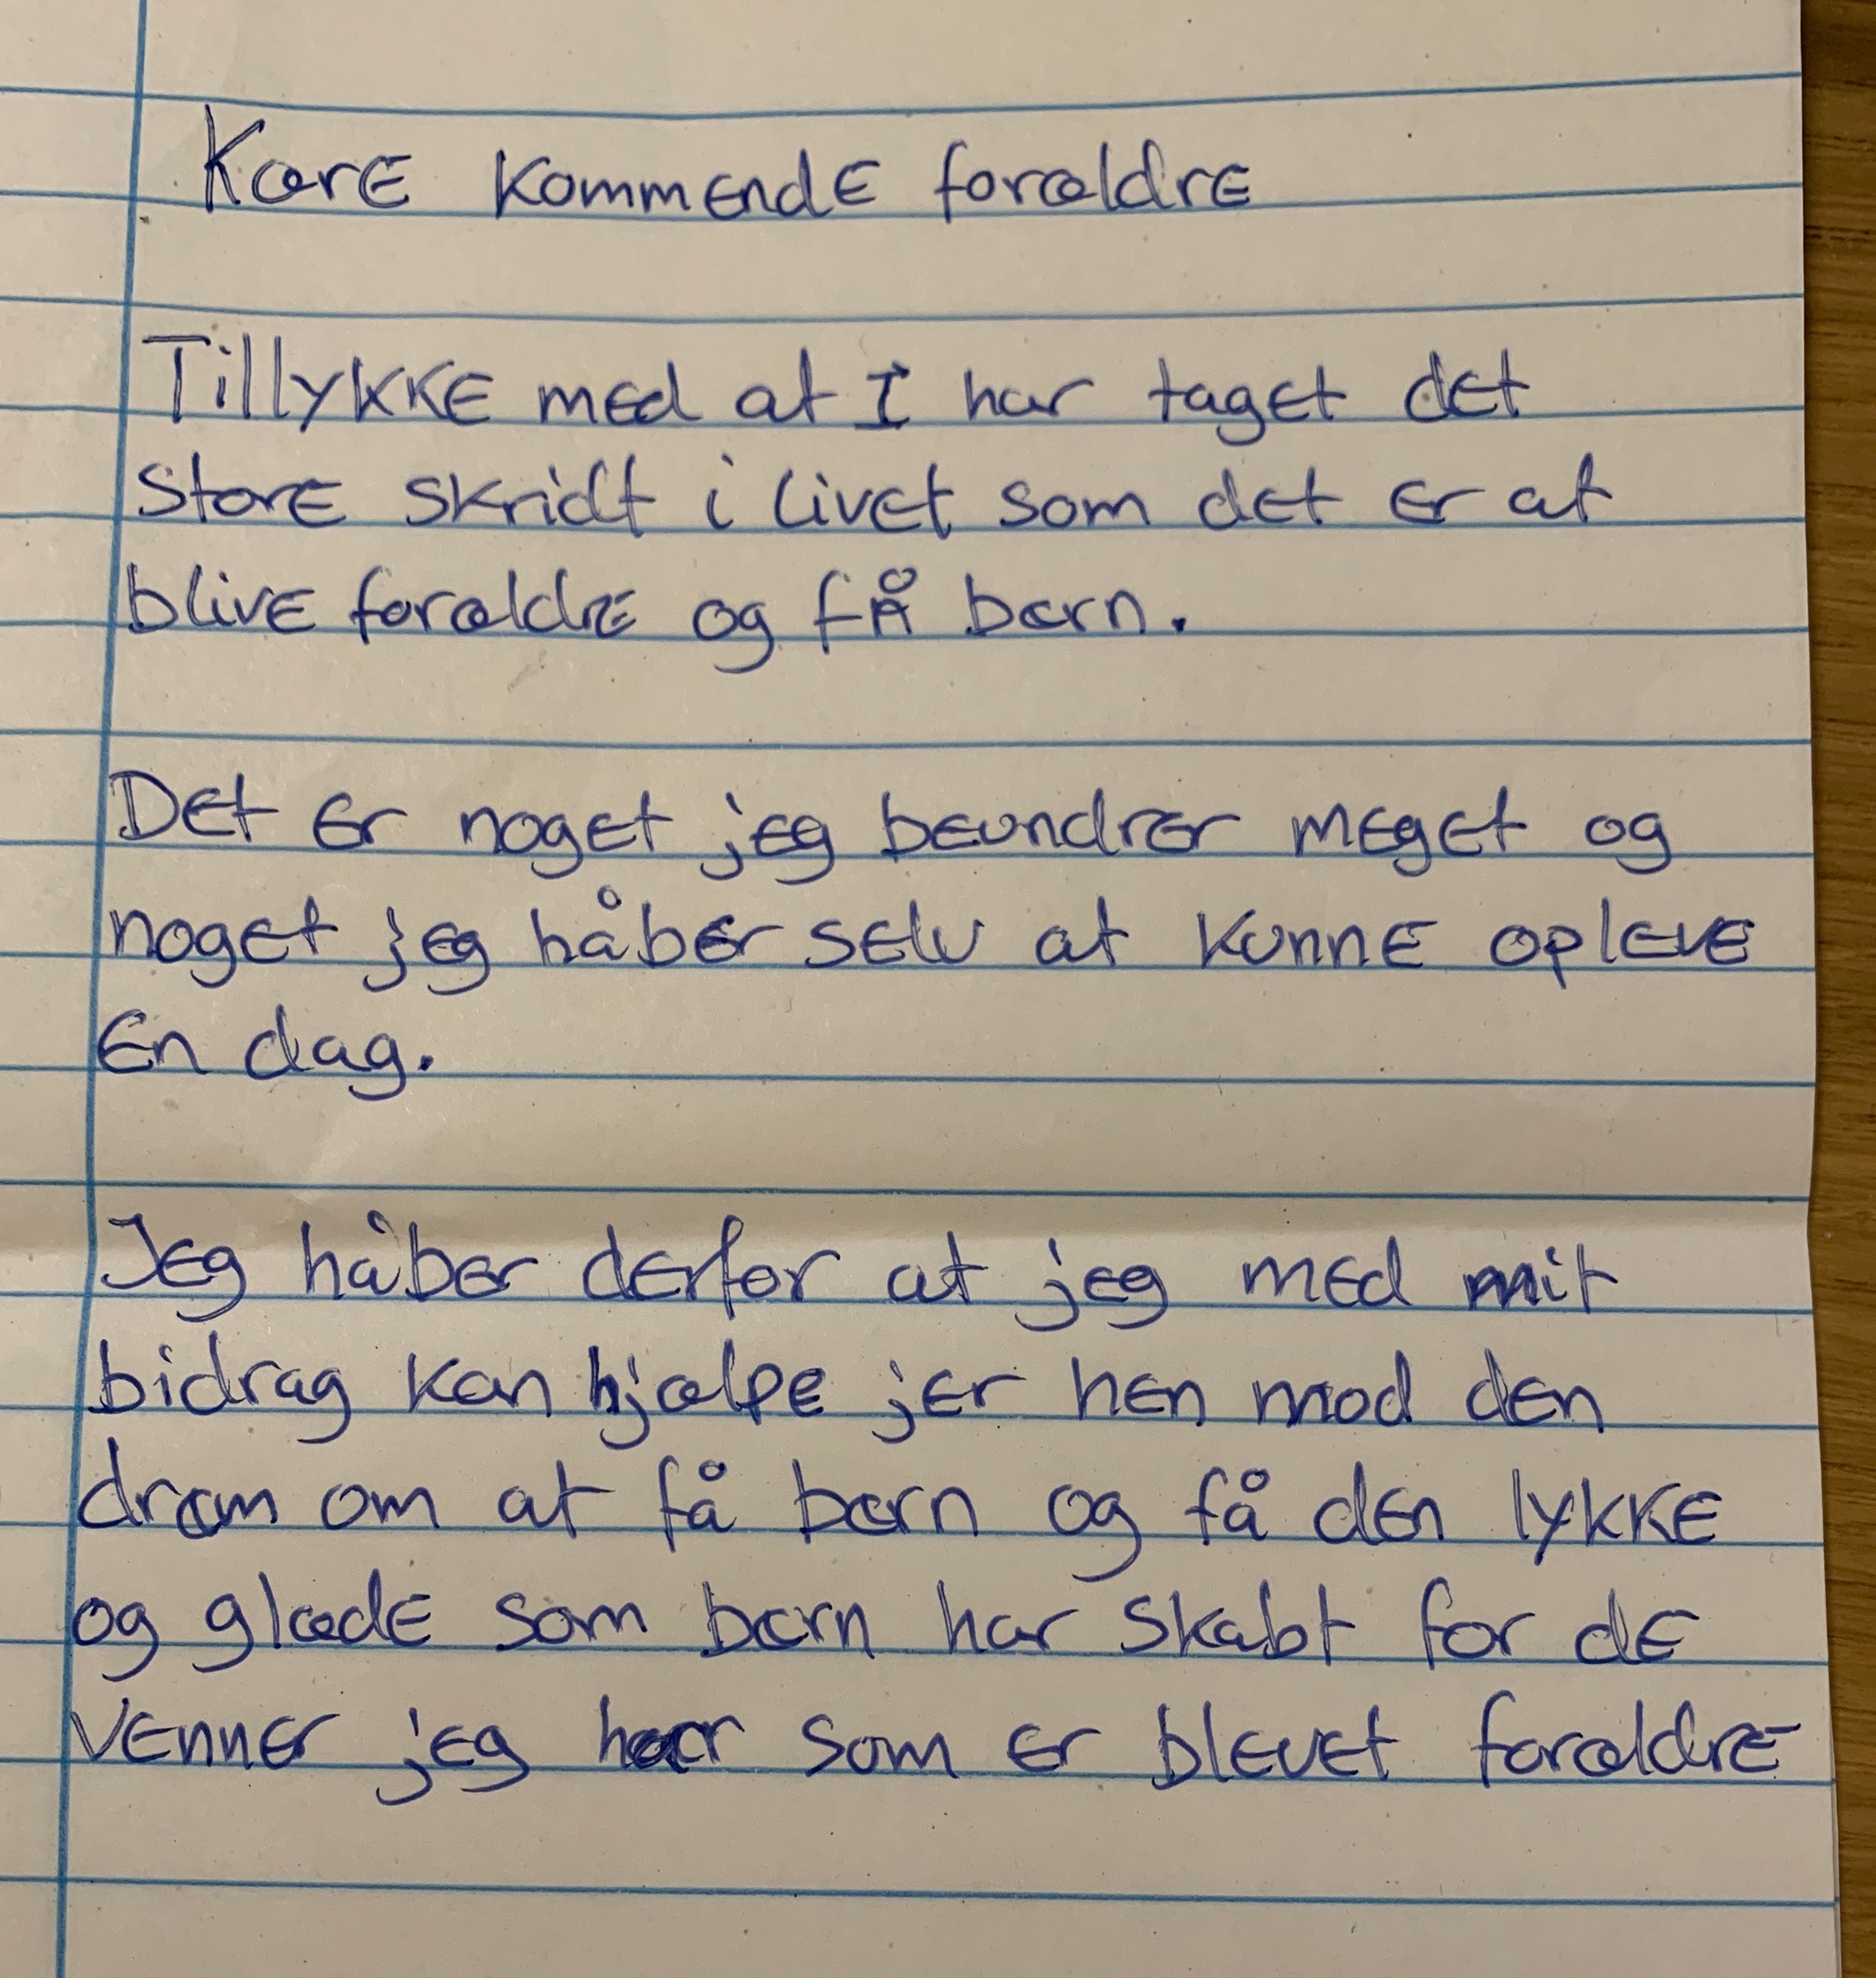 Kære kommende forældre
Tillykke med at I har taget det
store skridt i livet som det er at
blive forældre og få børn.
Det er noget jeg beundrer meget og
noget jeg håber selv at kunne opleve
en dag.
Jeg håber derfor at jeg med mit
bidrag kan hjælpe jer hen mod den
drøm om at få børn og få den lykke
og glæde som børn har skabt for de
venner jeg har som er blevet forældre